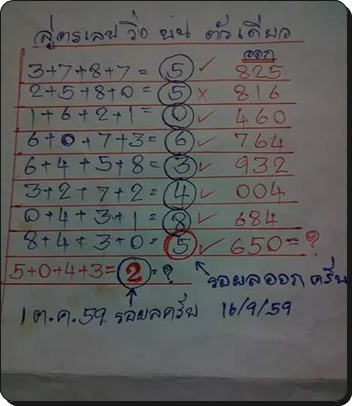 สูตรเลขวิ่ง บน ตัวเดียว
ออก
3+7+8+7= 5 ✓ 825
2+5+8+0= 5 × 816
1+6+2+1= 0 ✓ 460
6+0+7+3= 6 ✓ 764
6+4+5+8= 3 ✓ 932
3+2+7+2= 4 ✓ 004
0+4+3+1= 8 ✓ 684
8+4+3+0= 5 ✓ 650=?
5+0+4+3= 2 =? รอผลออกครับ
1 ต.ค.59 รอผลครับ 16/9/59